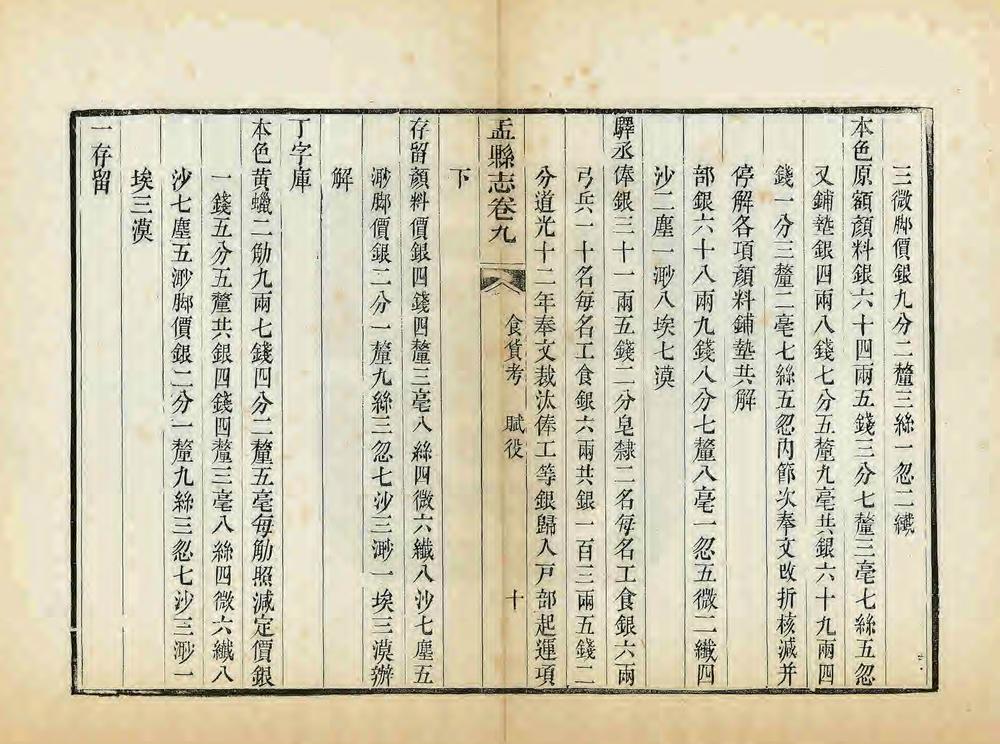 三微腳價銀九分二釐三絲一忽二纎
本色原額顏料銀六十四兩五錢三分七釐三毫七絲五忽
又鋪墊銀四兩八錢七分五釐九毫共銀六十九兩四
錢一分三釐二毫七絲五忽內節次奉文改折核減并
停解各項顏料鋪墊共解
部銀六十八兩九錢八分七釐八毫一忽五微二纎四
沙二塵一渺八埃七漠
驛丞俸銀三十一兩五錢二分皂隸二名每名工食銀六兩
弓兵一十名每名工食銀六兩共銀一百三兩五錢二
分道光十二年奉文裁汰俸工等銀歸入戸部起運項
下
盂縣志卷九
食貨考 賦役
十
存留顏料價銀四錢四釐三毫八絲四微六纎八沙七塵五
渺腳價銀二分一釐九絲三忽七沙三渺一埃三漠辦
解
丁字庫
本色黃蠟二觔九兩七錢四分二釐五毫每觔照減定價銀
一錢五分五釐共銀四錢四釐三毫八絲四微六纎八
沙七塵五渺腳價銀二分一釐九絲三忽七沙三渺一
埃三漠
一存留